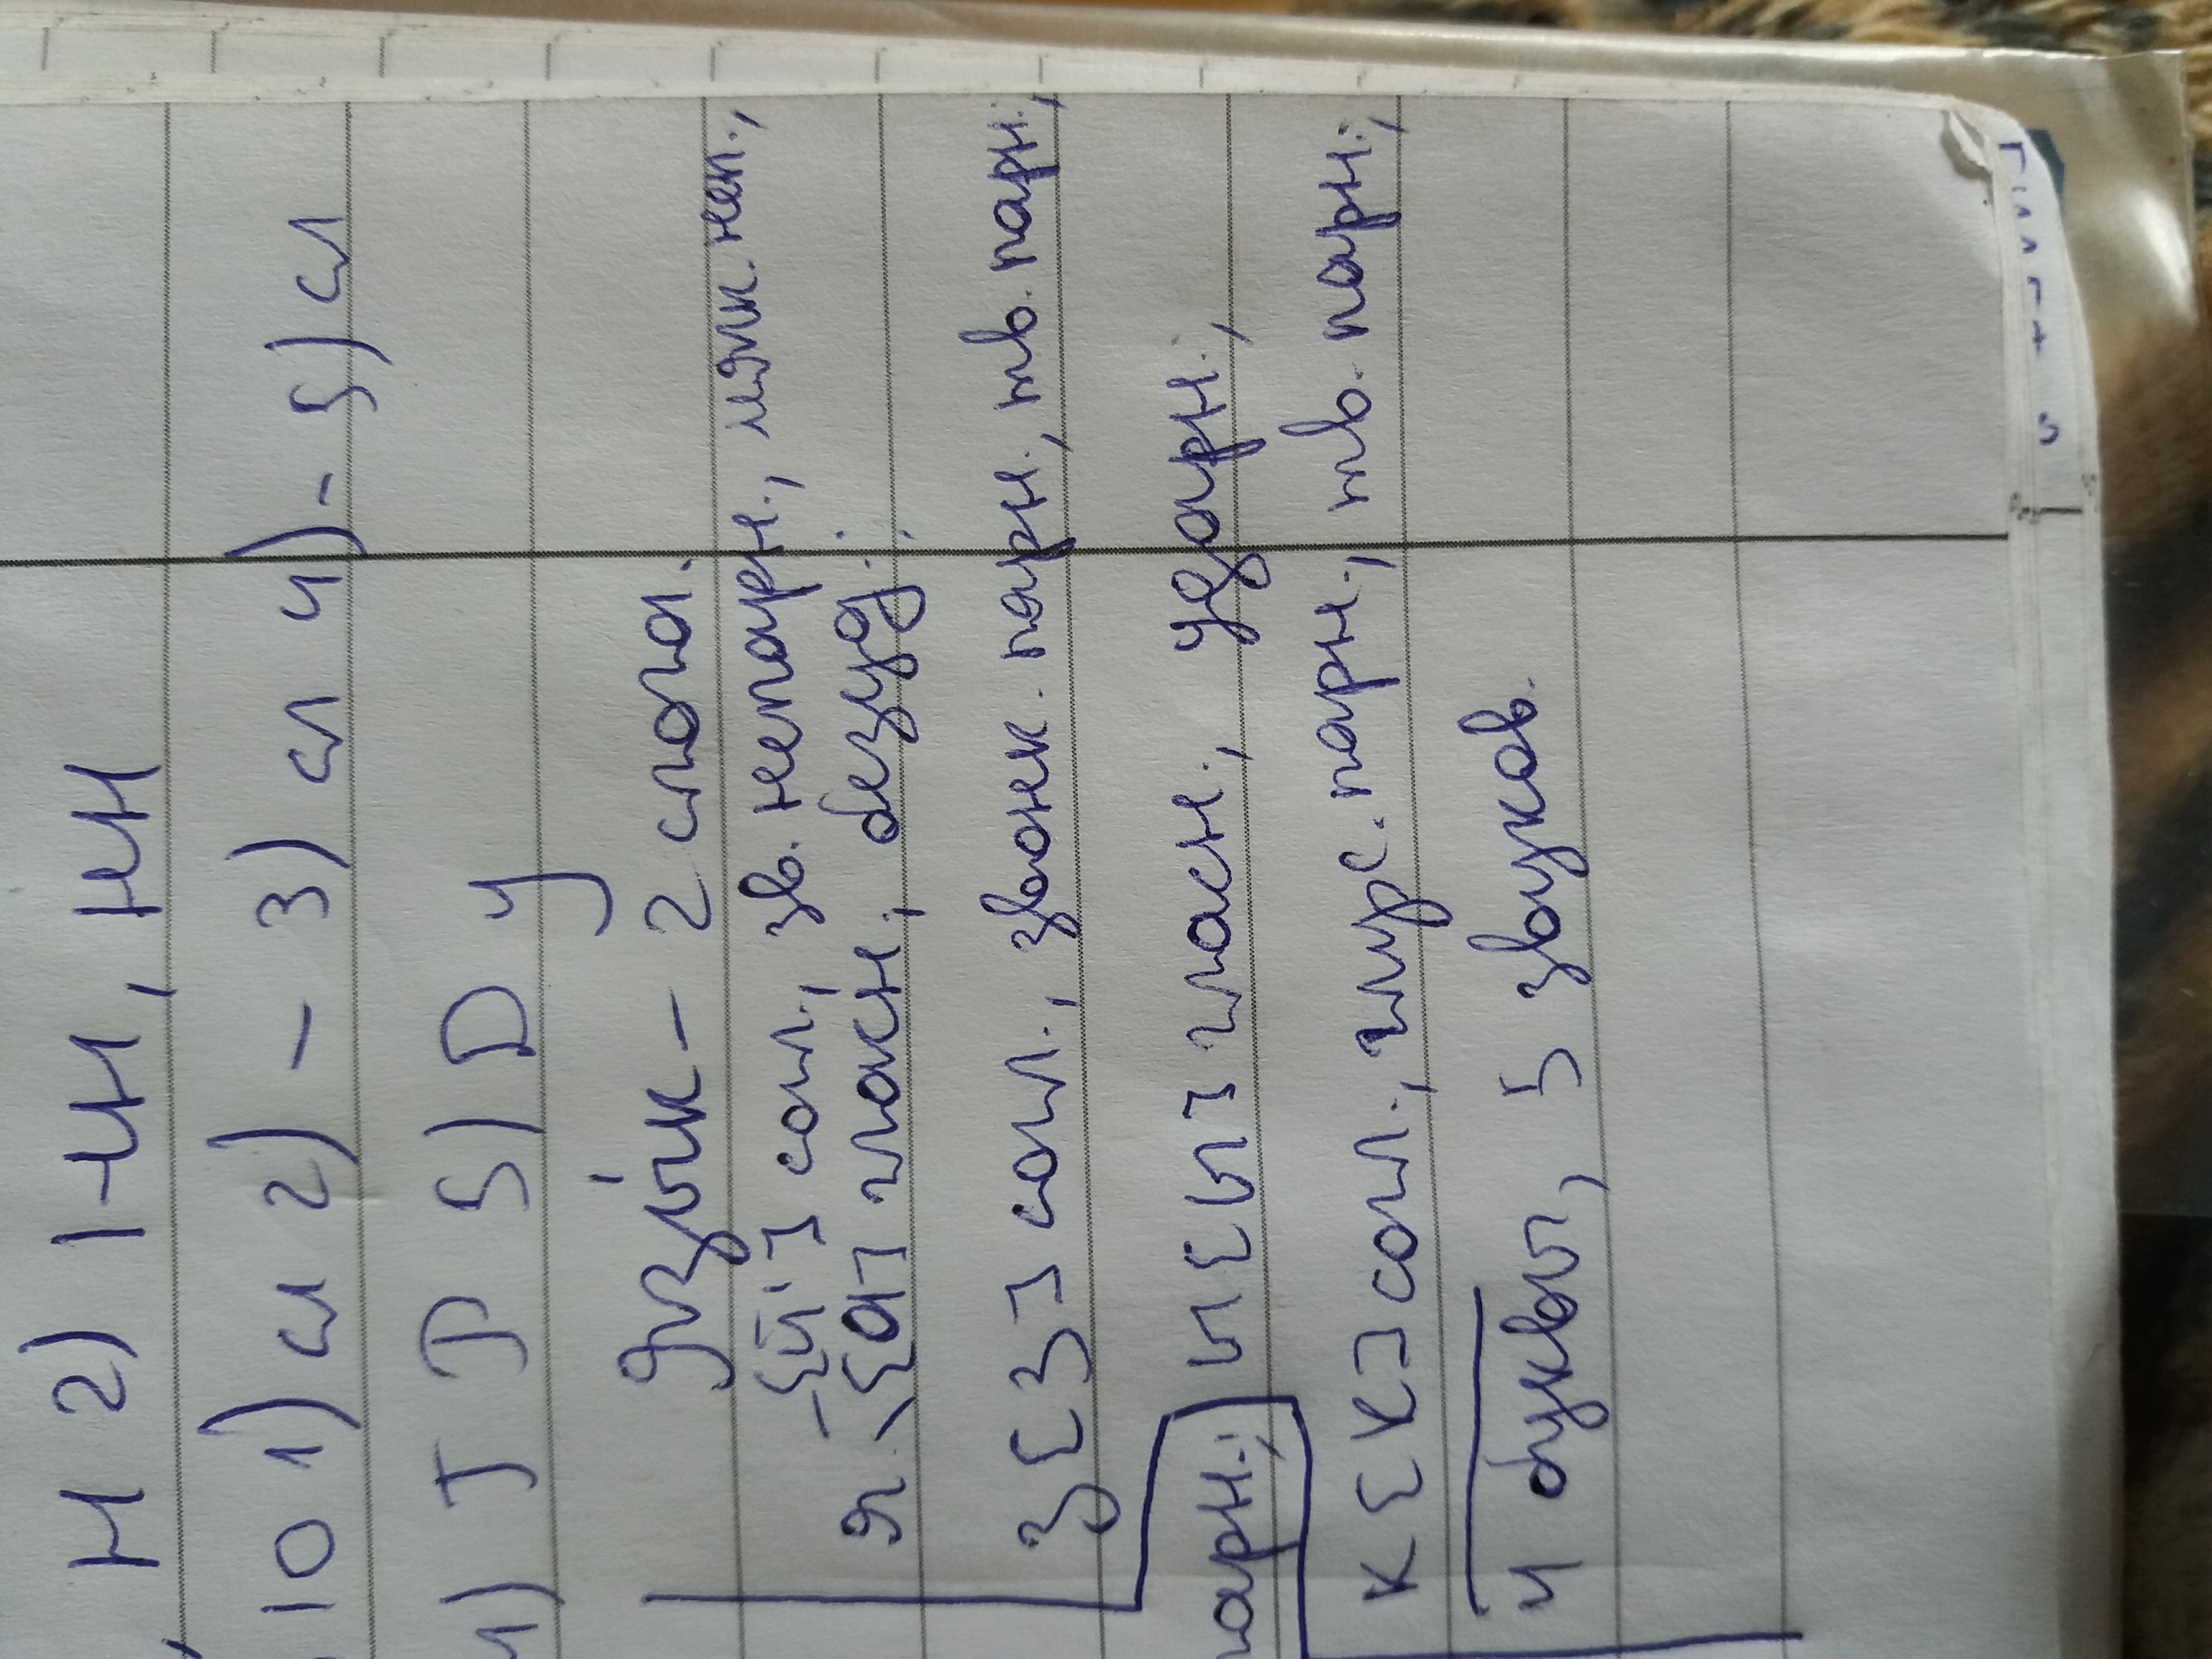 Н 2) 1-Н, НН
10 1) сл 2) - 3) сл 4) - 5) сл
4) J P S) D У
Язы́к - 2 слога.
- [й'] согл., зв. непарн., мягк. неп.,
я \ [а] гласн., безуд.;
з [з] согл., звонк. парн., тв. парн.,
парн.; ы [ы] гласн., ударн.;
к [к] согл., глух. парн., тв. парн.;
4 буквы, 5 звуков.